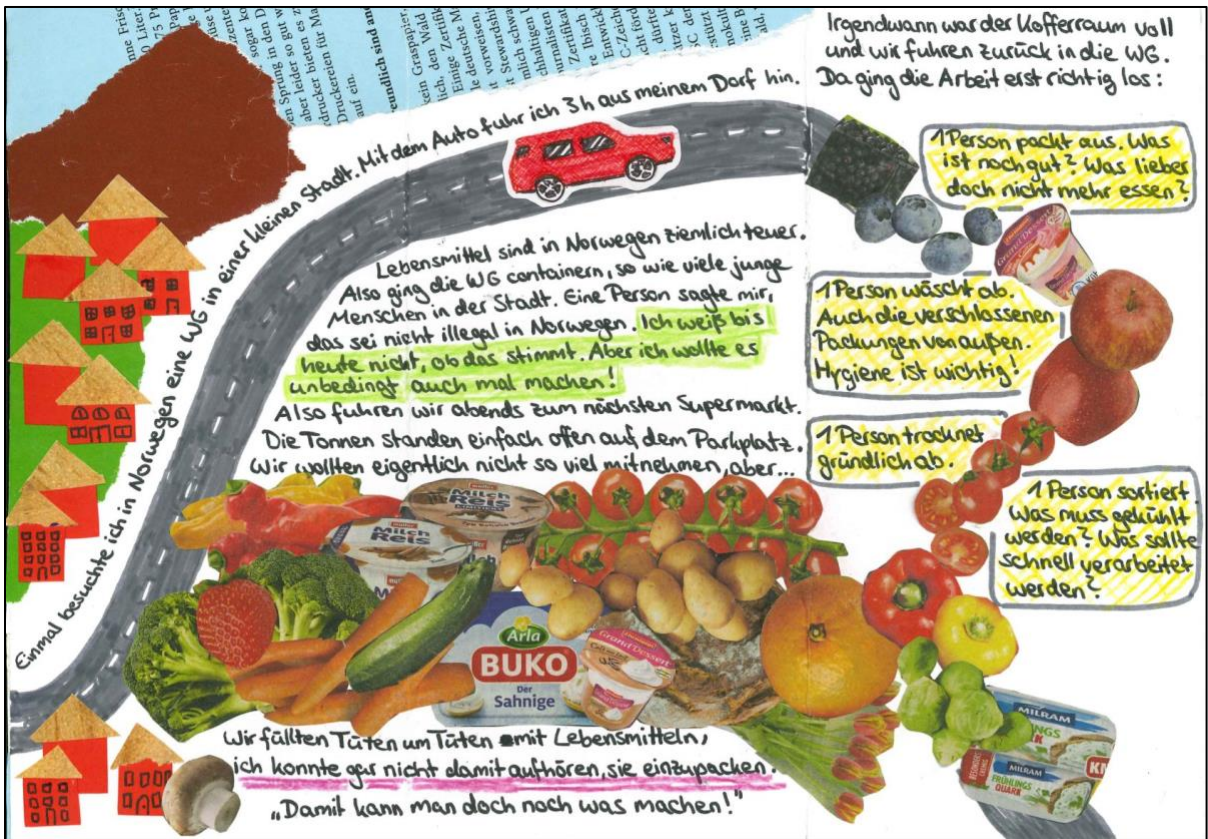 Einmal besuchte ich in Norwegen eine WG in einer kleinen Stadt. Mit dem Auto fuhr ich 3h aus meinem Dorf hin.
Lebensmittel sind in Norwegen ziemlich teuer.
Also ging die WG containern, so wie viele junge
Menschen in der Stadt. Eine Person sagte mir,
das sei nicht illegal in Norwegen. Ich weiß bis
heute nicht, ob das stimmt. Aber ich wollte es
unbedingt auch mal machen!
Also fuhren wir abends zum nächsten Supermarkt.
Die Tonnen standen einfach offen auf dem Parkplatz.
Wir wollten eigentlich nicht so viel mitnehmen, aber...
Milch
Reis
Milch
Reis
Arla
BUKO
Der
Sahnige
Grand Dessert
Wir füllten Tüten um Tüten mit Lebensmitteln,
ich konnte gar nicht damit aufhören, sie einzupacken.
„Damit kann man doch noch was machen!"
Irgendwann war der Kofferraum voll
und wir fuhren zurück in die WG.
Da ging die Arbeit erst richtig los:
1 Person packt aus. Was
ist noch gut? Was lieber
doch nicht mehr essen?
Grand Dessert
1 Person wäscht ab.
Auch die verschlossenen
Packungen von außen.
Hygiene ist wichtig!
1 Person trocknet
gründlich ab.
1 Person sortiert.
Was muss gekühlt
werden? Was sollte
schnell verarbeitet
werden?
MILRAM
MILRAM
FRÜHLINGS
QUARK